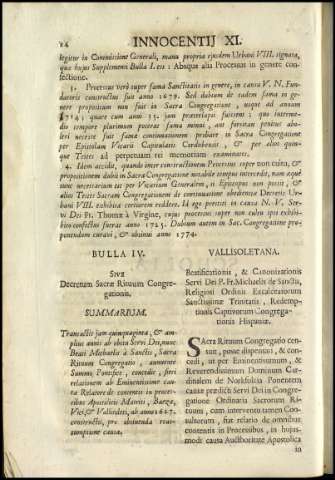 24 INNOCENTIJ XI.
legitur in Commissione Generali, manu propria ejusdem Urbani VIII. signata,
quæ hujus Supplementi Bulla I. est: Absque alia Processus in genere con-
fectione.
3. Processus verò super fama Sanctitatis in genere, in causa V. N. Fun-
datoris constructus fuit anno 1679. Sed dubium de eadem fama in ge-
nere propositum non fuit in Sacra Congregatione, usque ad annum
1714; quare cum anni 35. jam præterlapsi fuissent; quo interme-
dio tempore plurimum poterat fama minui, aut forsitan penitus abo-
leri necesse fuit fama continuationem probare in Sacra Congregatione
per Epistolam Vicarij Capitularis Cordubensis, & per alios quin-
que Testes ad perpetuam rei memoriam examinatos.
4. Idem accidit, quando inter constructionem Processus super non cultu, &
propositionem dubij in Sacra Congregatione notabile tempus intercedit, nam æquè
tunc necessarium est per Vicarium Generalem, si Episcopus non potest, &
alios Testes Sacram Congregationem de continuatione obedientiæ Decretis Ur-
bani VIII. exhibitæ certiorem reddere. Id ego præstiti in causa N. V. Ser-
vi Dei Fr. Thomæ à Virgine, cujus processus super non cultu ipsi exhibi-
to confectus fuerat anno 1725. Dubium autem in Sac. Congregatione pro-
ponendum curavi, & obtinui anno 1774.
BULLA IV.
SIVE
Decretum Sacræ Rituum Congre-
gationis.
SUMMARIUM.
Transactis jam quinquaginta, & am-
plius annis ab obitu Servi Dei, nunc
Beati Michaelis à Sanctis, Sacra
Rituum Congregatio, annuente
Summo Pontifice, concedit, fieri
relationem ab Eminentissimo cau-
sæ Relatore de contentis in proces-
sibus Apostolicis Matriti, Baezæ,
Vici, & Vallisoleti, ab anno 1627.
constructis, pro obtinenda reas-
sumptione causæ.
VALLISOLETANA.
Beatificationis, & Canonizationis
Servi Dei P. Fr. Michaelis de Sanctis,
Religiosi Ordinis Excalceatorum
Sanctissimæ Trinitatis, Redemp-
tionis Captivorum Congrega-
tionis Hispaniæ.
SAcra Rituum Congregatio cen-
suit, posse dispensari, & con-
cedi, ut per Eminentissimum, &
Reverendissimum Dominum Car-
dinalem de Norfolkia Ponentem
causæ prædicti Servi Dei in Congre-
gatione Ordinaria Sacrorum Ri-
tuum, cum interventu tamen Con-
sultorum, fiat relatio de omnibus
contentis in Processibus, in hujus-
modi causa Authoritate Apostolica
in